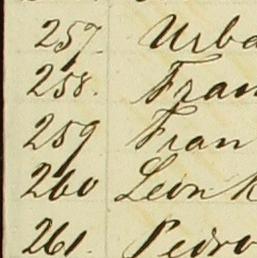 257. Urba
258. Fran
259 Fran
260 Leon
261. Pedro